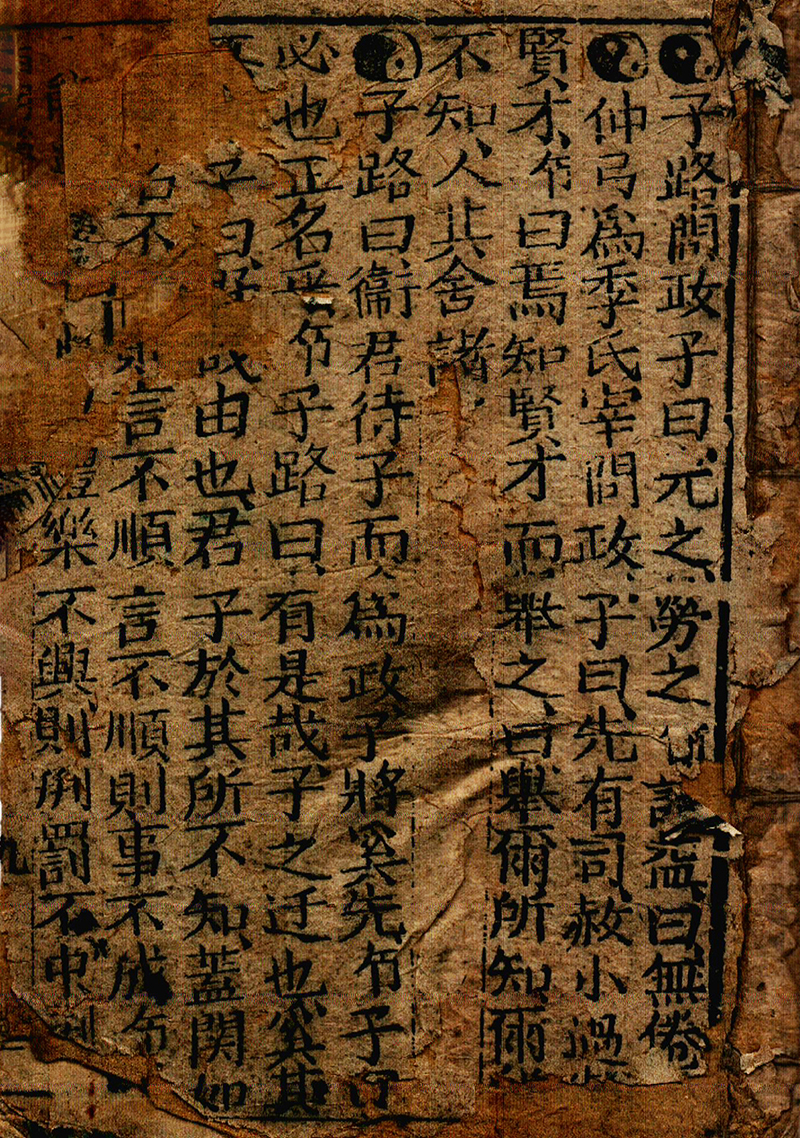 子路問政子曰元之勞之請益曰無倦
仲弓爲季氏宰問政子曰先有司赦小過
賢才曰焉知賢才而擧之曰擧爾所知爾
不知人其舍諸
子路曰衛君待子而爲政子將奚先子曰
必也正名子路曰有是哉子之迂也奚其
子曰哉由也君子於其所不知蓋関如
名不則言不順言不順則事不成
禮樂不興則刑罰不中則